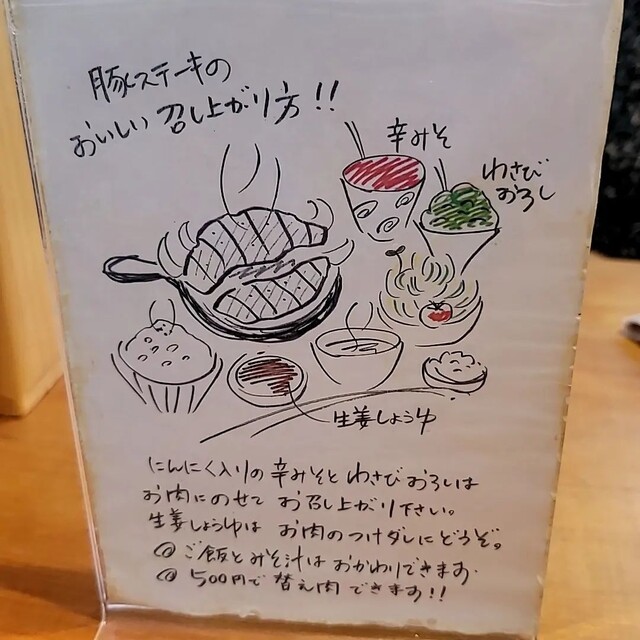 豚ステーキの
おいしい 召し上がり方!!
辛みそ
わさび
おろし
生姜しょうゆ
にんにく入りの 辛みそと わさびおろしは
お肉にのせて お召し上がり下さい。
生姜しょうゆは お肉のつけダレにどうぞ。
◎ ご飯とみそ汁は おかわりできます。
◎ 500円で 替え肉 できます!!